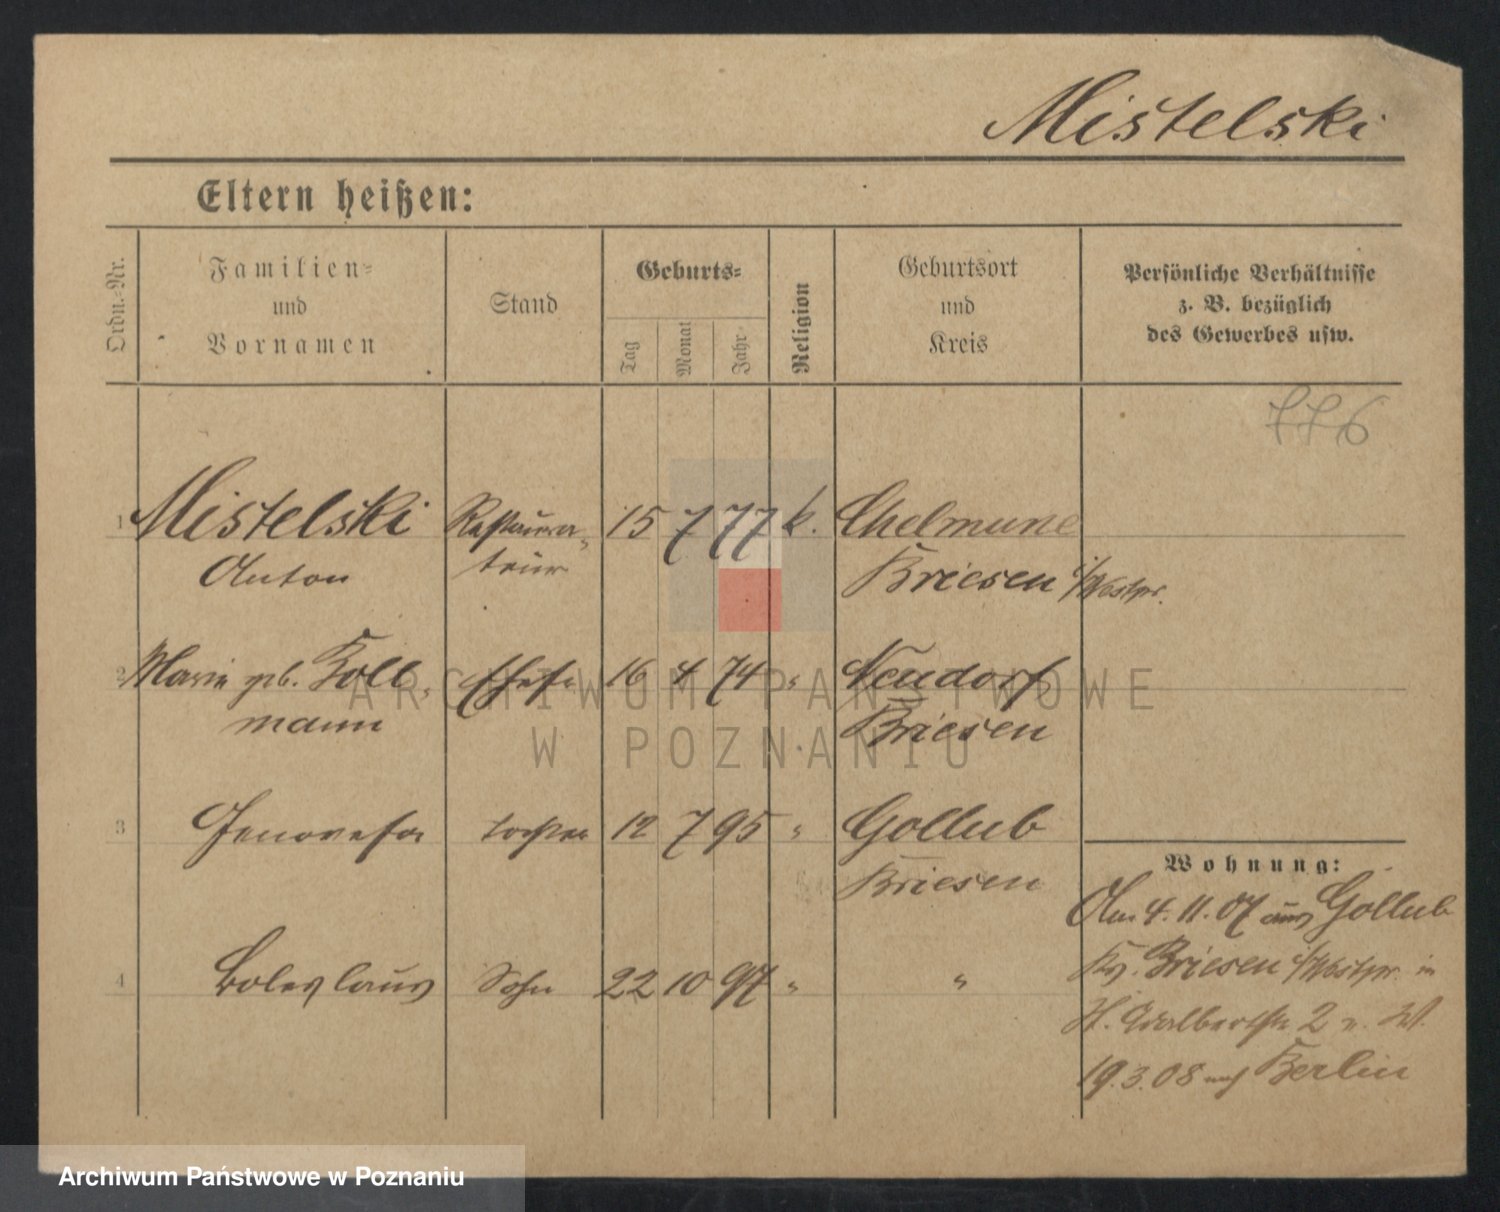 Mistelski
Eltern heißen:
Ordn.-Nr.
Familien-
und
Vornamen
Stand
Geburts-
Tag
Monat
Jahr
Religion
Geburtsort
und
Kreis
Persönliche Verhältnisse
z. B. bezüglich
des Gewerbes usw.
776
1 Mistelski Restaura- 15 7 77 k. Chelmune
Anton teur Briesen i/Westpr.
2 Marie geb. Koll- Ehefr 16 4 74 " Neudorf,
mann Briesen
3 Jenovefa Tochter 12 7 95 " Gollub
Briesen
4 Boleslaus Sohn 22 10 97 " "
Wohnung:
Am 4.11.07 aus Gollub
Kr. Briesen i/Westpr. in
St. Adalbertstr. 2 n. W.
19.3.08 nach Berlin
ARCHIWUM PAŃSTWOWE
W POZNANIU
Archiwum Państwowe w Poznaniu